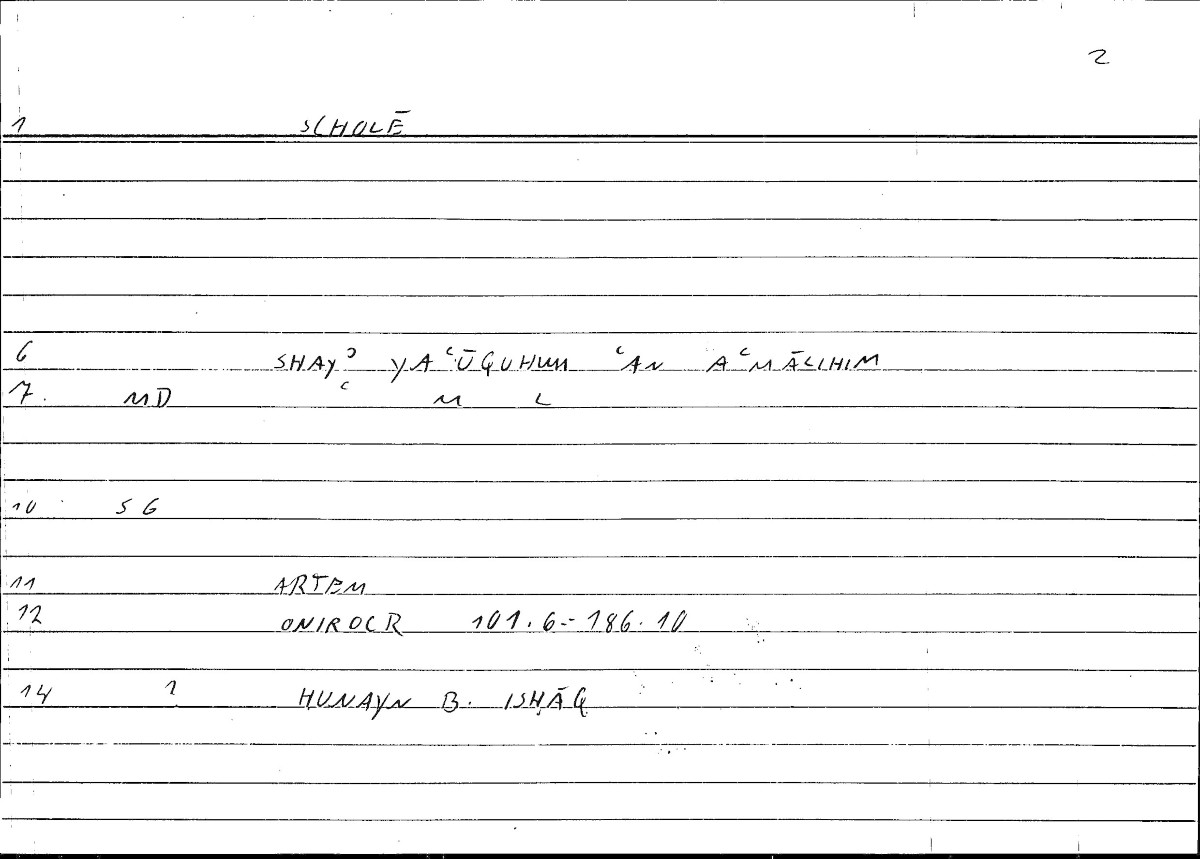 2
1 SCHOLĒ
6 SHAYʾ YAʿŪQUHUM ʿAN AʿMĀLIHIM
7. MD ʿ M L
10 SG
11 ARTEM
12 ONIROCR 101.6-186.10
14 1 ḤUNAYN B. ISḤĀQ